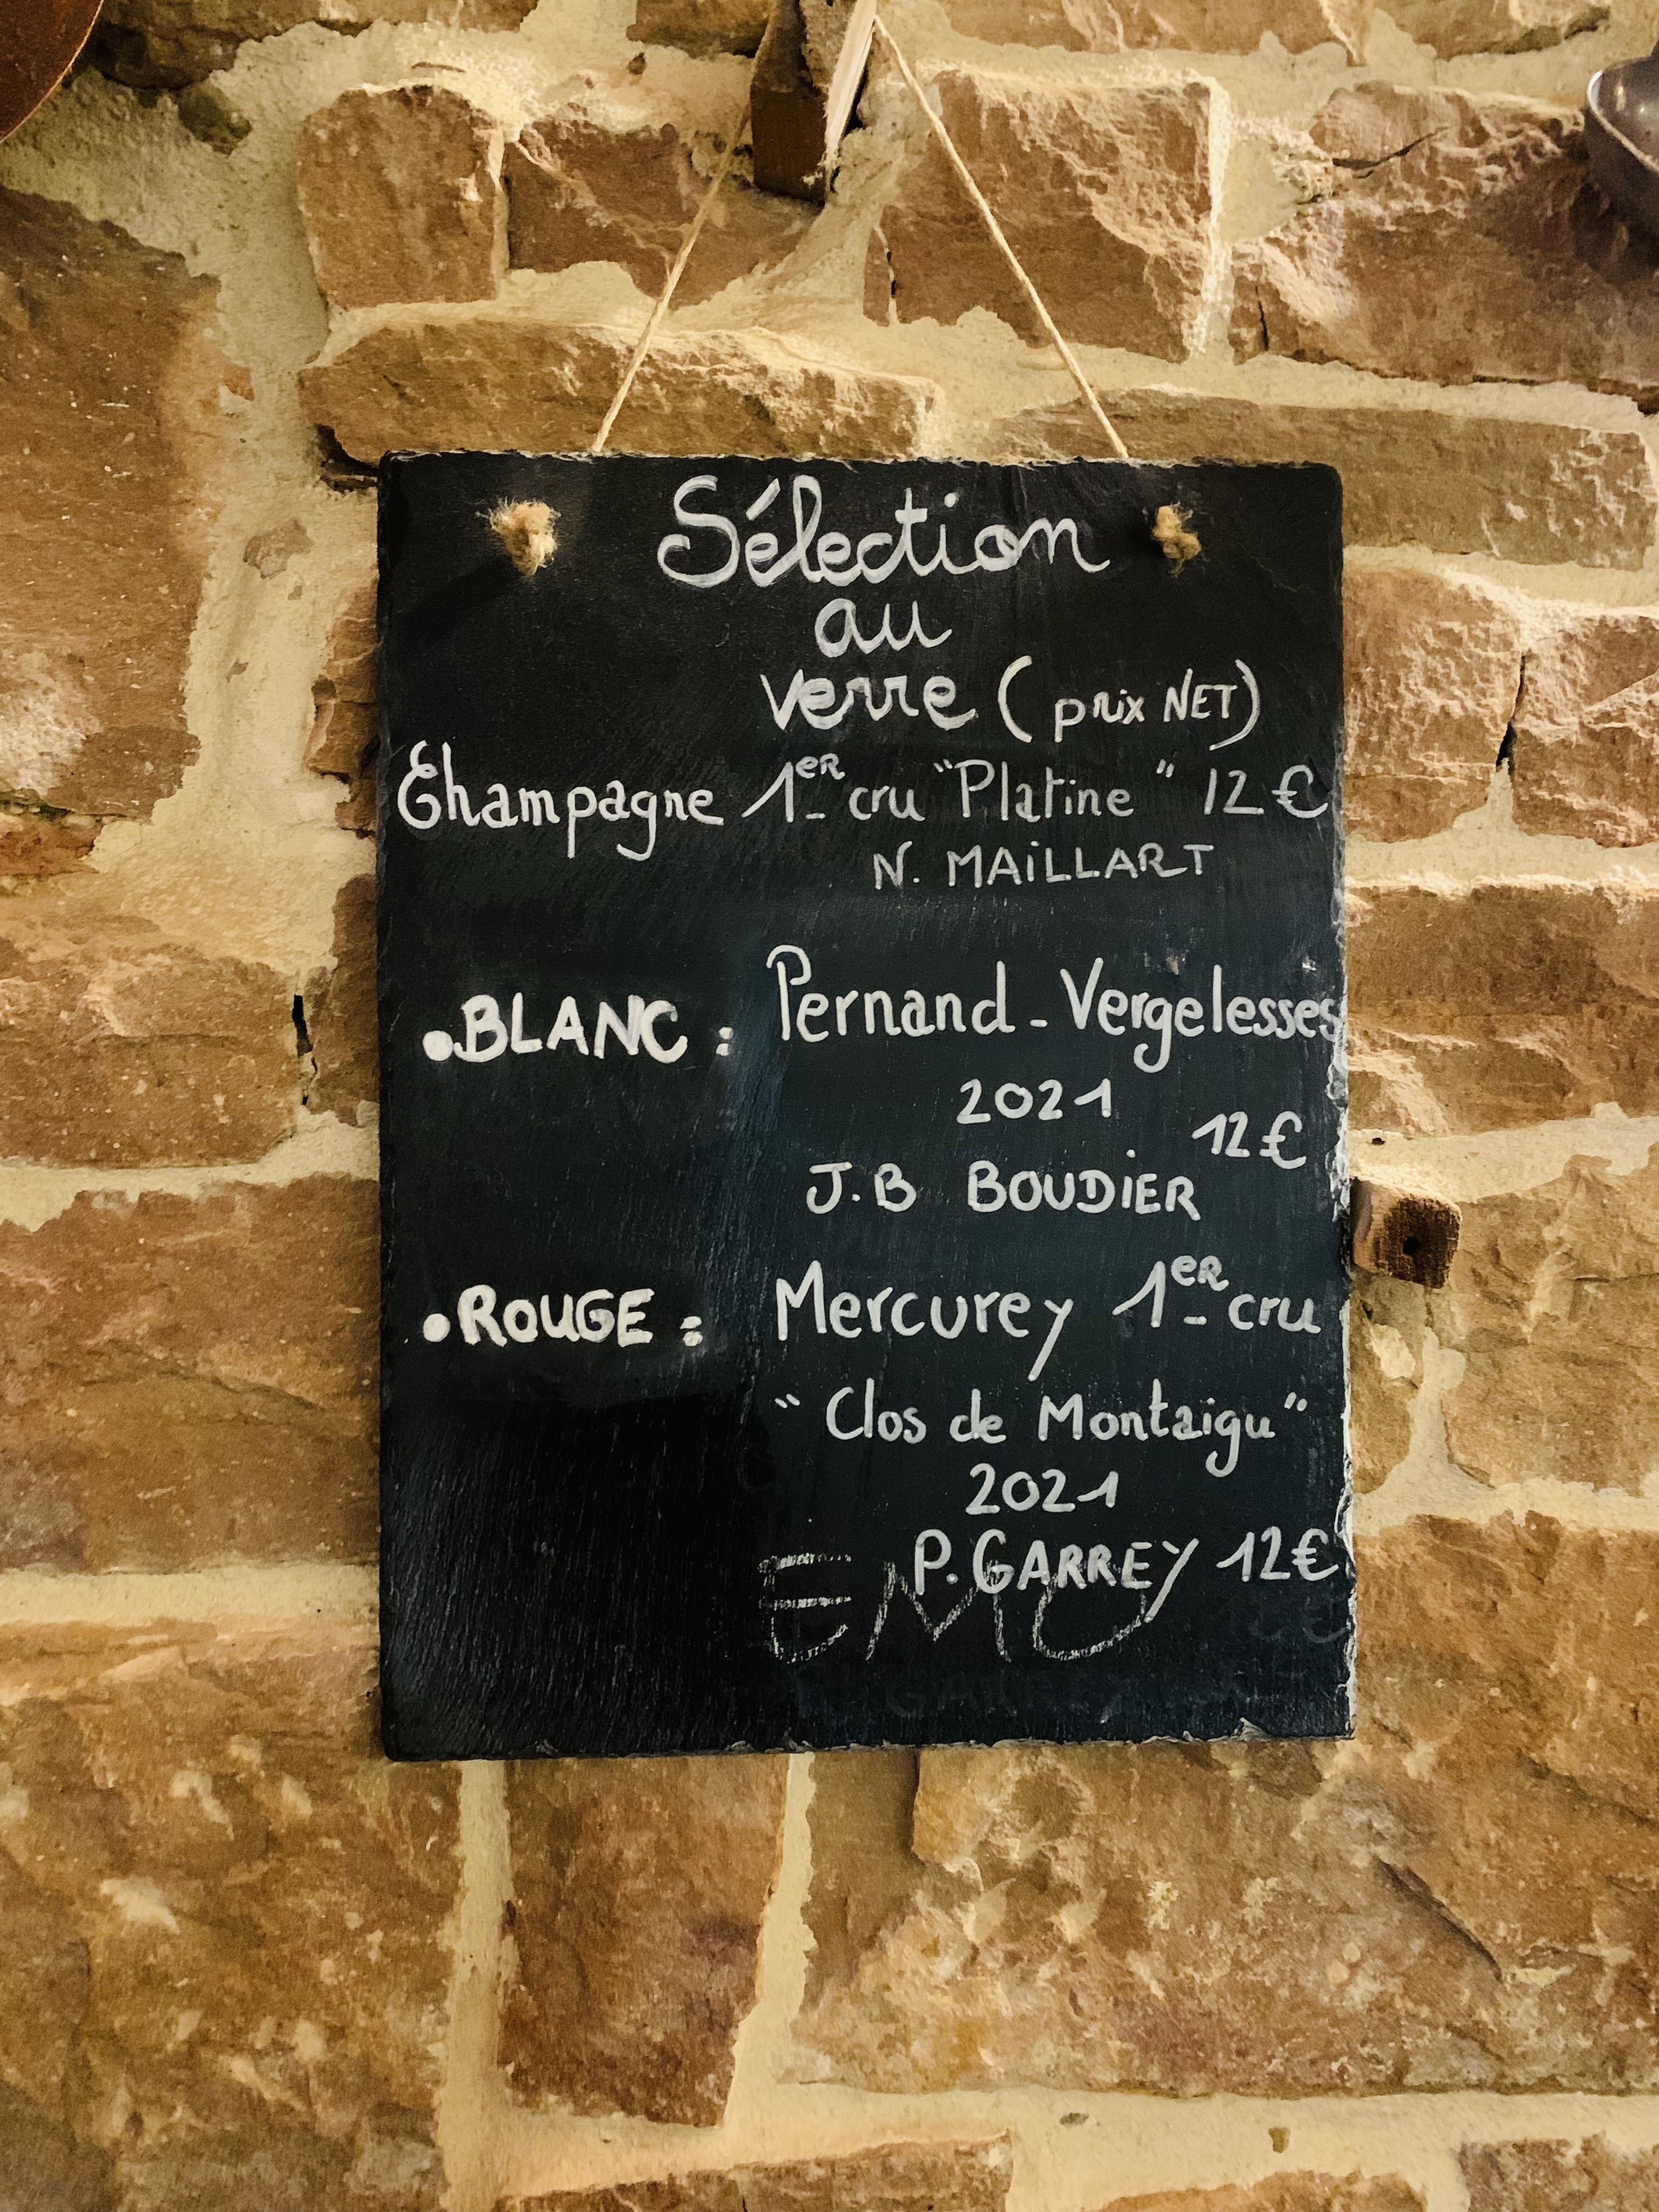 Sélection
au
verre (prix NET)
Champagne 1er cru "Platine" 12€
N. MAiLLART
•BLANC : Pernand-Vergelesses
2021
12€
J.B BOUDiER
•ROUGE : Mercurey 1er cru
"Clos de Montaigu"
2021
P. GARREY 12€
EMU